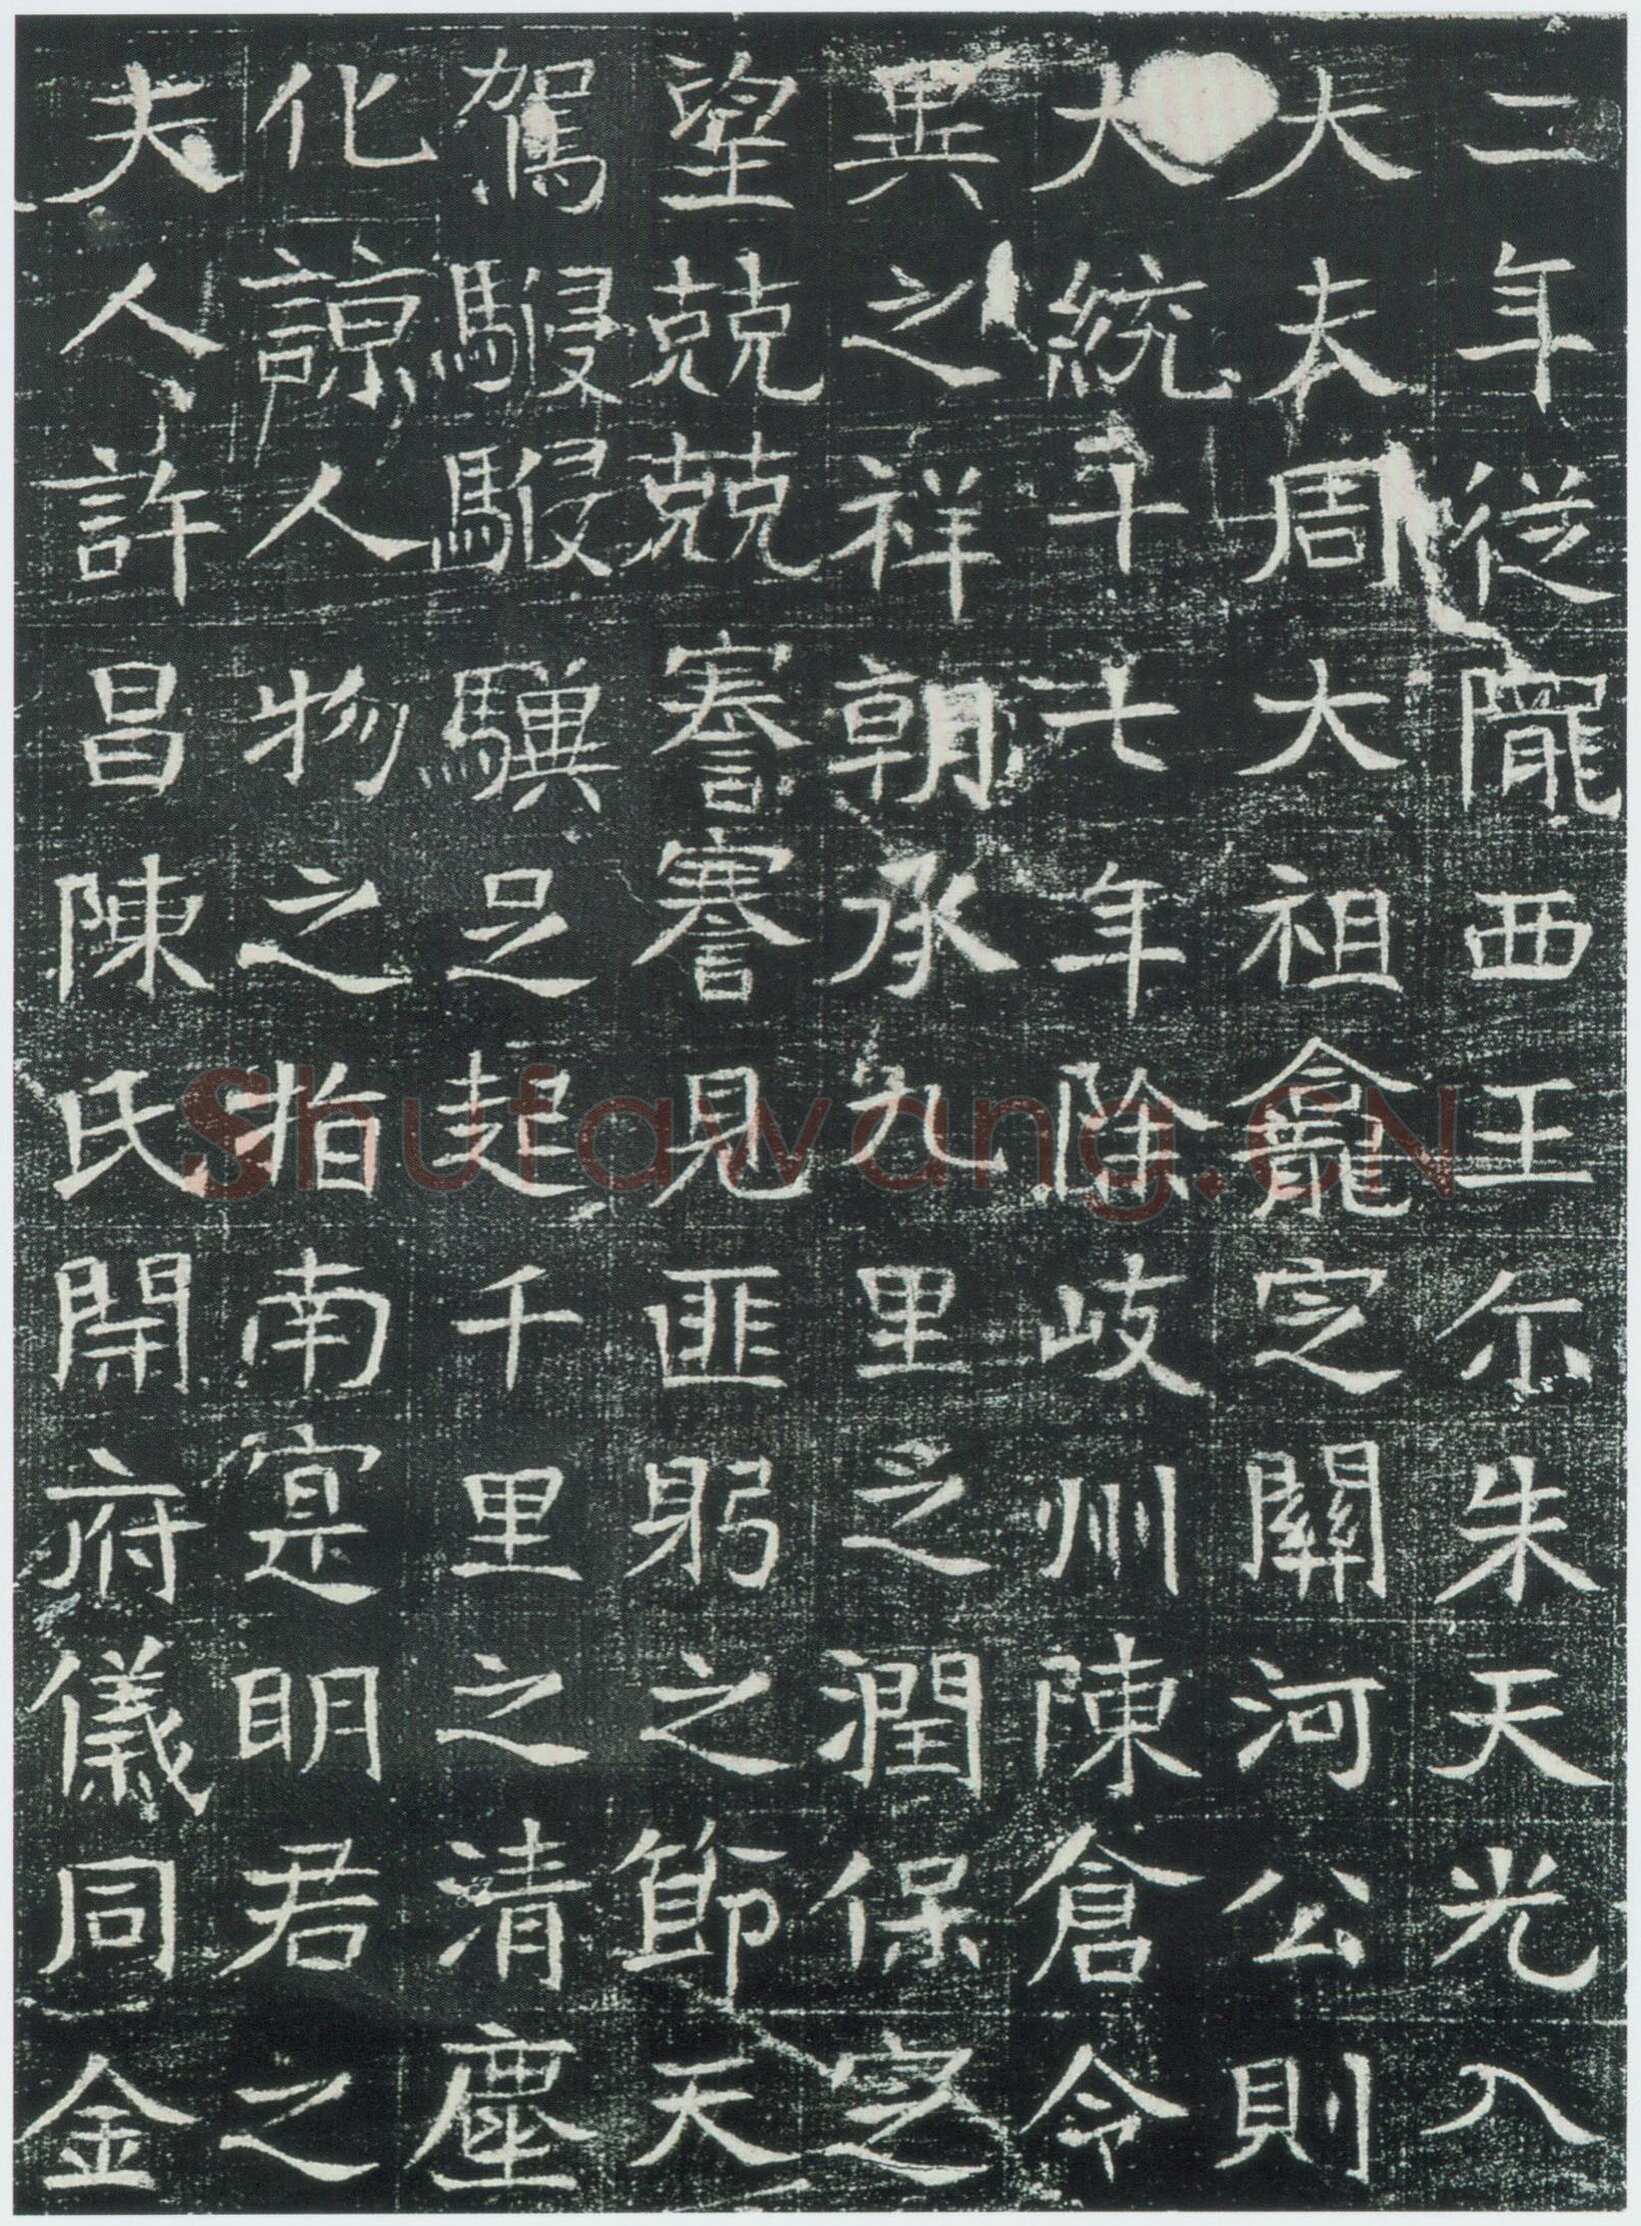 二年從隴西王尓朱天光入
大夫周大祖龕定關河公則
大統十七年除岐州陳倉令
異之祥朝承九里之潤保定
望兢兢謇謇見匪躬之節天
駕駸駸驥足起千里之清塵
化諒人物之指南寔明君之
夫人許昌陳氏開府儀同金
Shufawang.CN